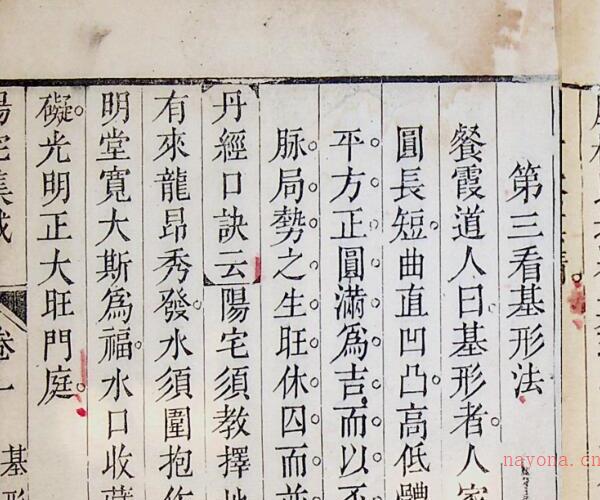 第三看基形法
餐霞道人曰基形者。人家
圓長短。曲直凹凸。高低體
平方正圓滿爲吉而以不
脉局勢之生旺休囚而並
丹經口訣云陽宅須教擇地
有來龍昂秀發。水須圍抱作
明堂寬大斯爲福。水口收藏
礙。光明正大旺門庭。
陽宅集成 卷一 基形
nayona.cn